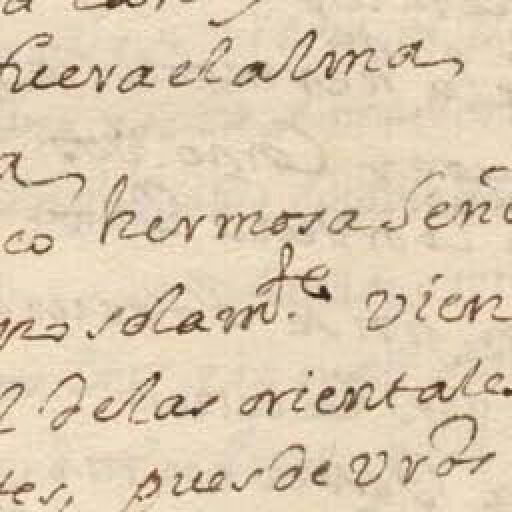 fuera el alma,
a,
co hermosa Señ
no solam.te vien
l. de las orientale
tes, pues de vros